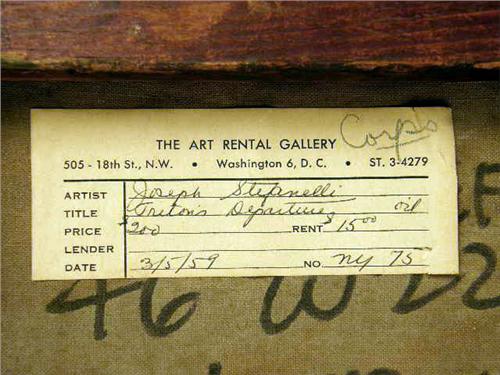 Corp's
THE ART RENTAL GALLERY
505 - 18th St., N.W. • Washington 6, D.C. • ST. 3-4279
ARTIST Joseph Stefanelli
TITLE Triton's Departure oil
PRICE $200 RENT 15.00
LENDER
DATE 3/5/59 NO NY 75
46 W